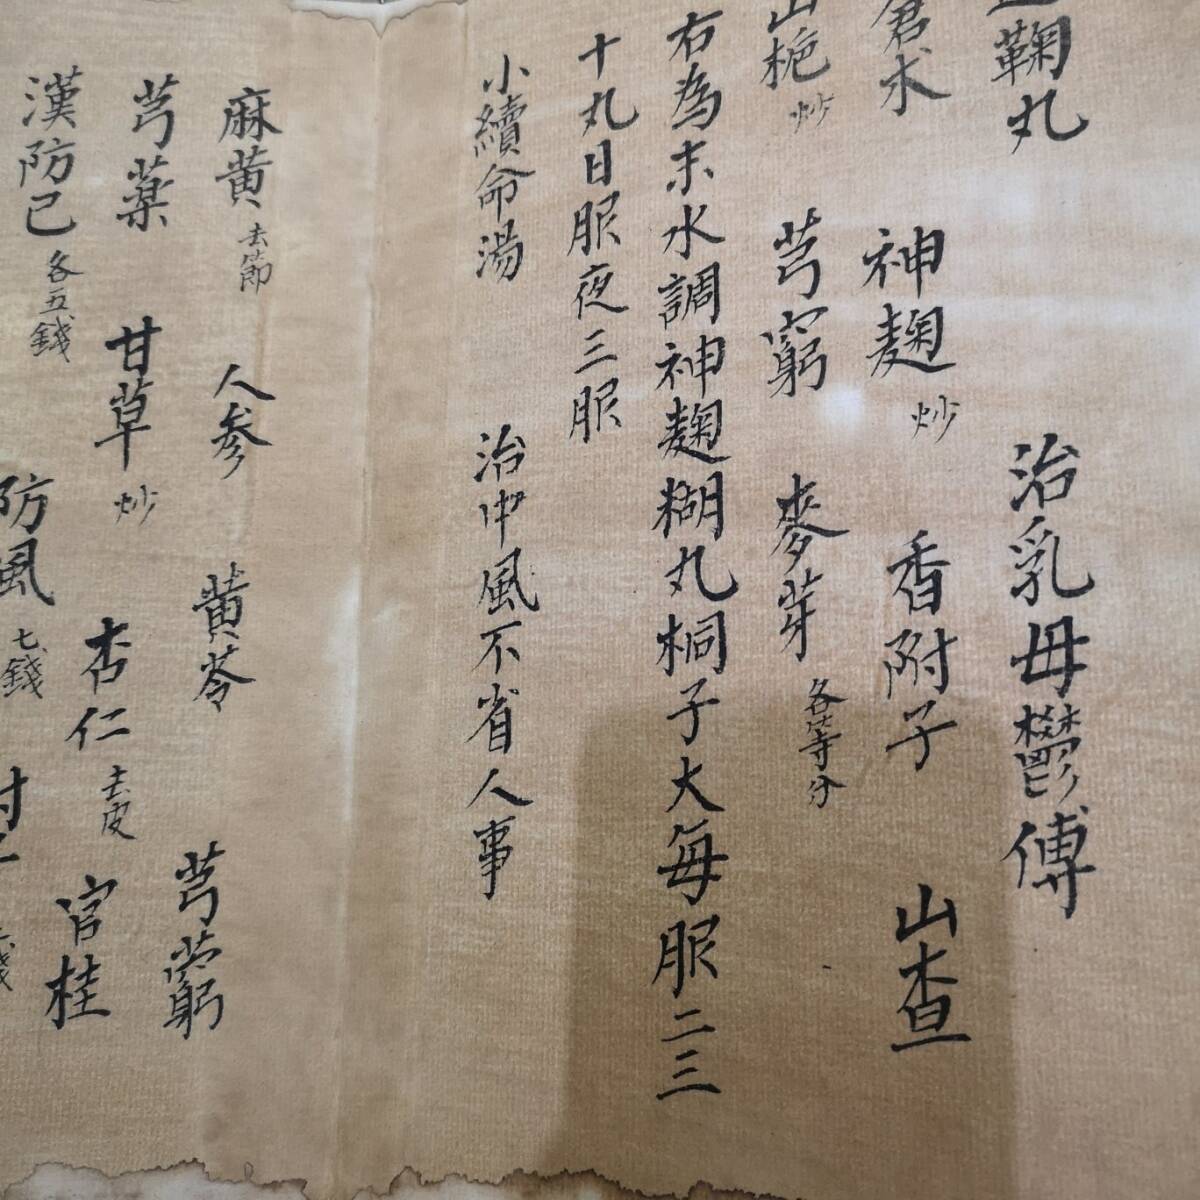 鞠丸 治乳母鬱傳
倉朮 神麴 炒 香附子 山查
山梔 炒 芎窮 麥芽 各等分
右為末水調神麴糊丸桐子大每服二三
十丸日服夜三服
小續命湯 治中風不省人事
麻黄 去節 人参 黄芩 芎藭
芍薬 甘草 炒 杏仁 去皮 官桂
漢防己 各五錢 防風 七錢